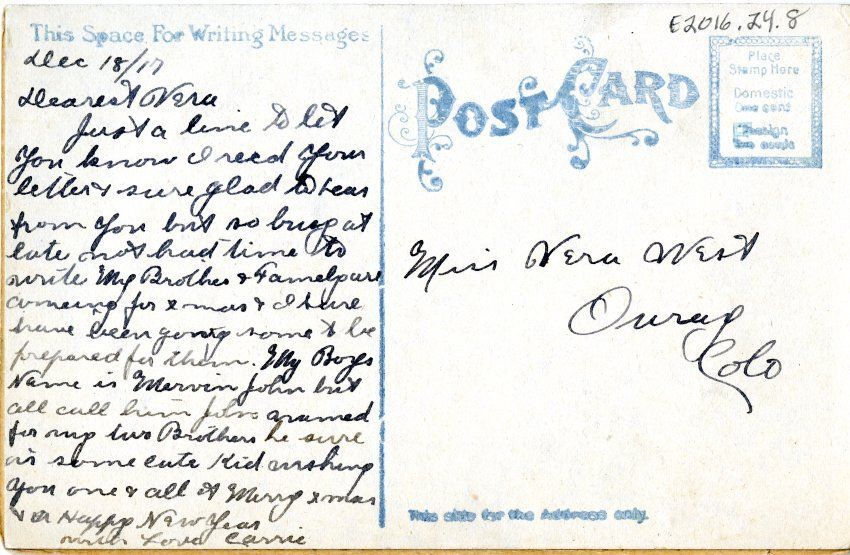 E2016.24.8
This Space For Writing Messages
Dec 18/17
Dearest Vera
Just a line to let
you know I recd your
letter & sure glad to hear
from you but so busy at
late not had time to
write My Brother & Famely are
comeing for xmas & I sure
have been going some to be
prepared for them. My Boys
Name is Mervin John but
all call him John named
for my two Brothers he sure
is some cute Kid wishing
you one & all A Merry xmas
& a Happy New Year
with Love Carrie
POST CARD
Place
Stamp Here
Domestic
One cent
Foreign
two cents
Miss Vera West
Ouray
Colo
This side for the Address only.